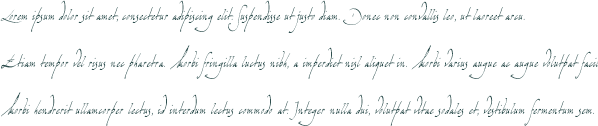 Lorem ipsum dolor sit amet, consectetur adipiscing elit. Suspendisse ut justo diam. Donec non convallis leo, ut laoreet arcu.
Etiam tempor vel risus nec pharetra. Morbi fringilla luctus nibh, a imperdiet nisl aliquet in. Morbi varius augue ac augue volutpat faci
Morbi hendrerit ullamcorper lectus, id interdum lectus commodo at. Integer nulla dui, volutpat vitae sodales et, vestibulum fermentum sem.